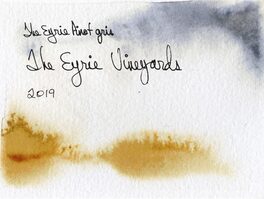 The Eyrie Pinot gris
The Eyrie Vineyards
2019